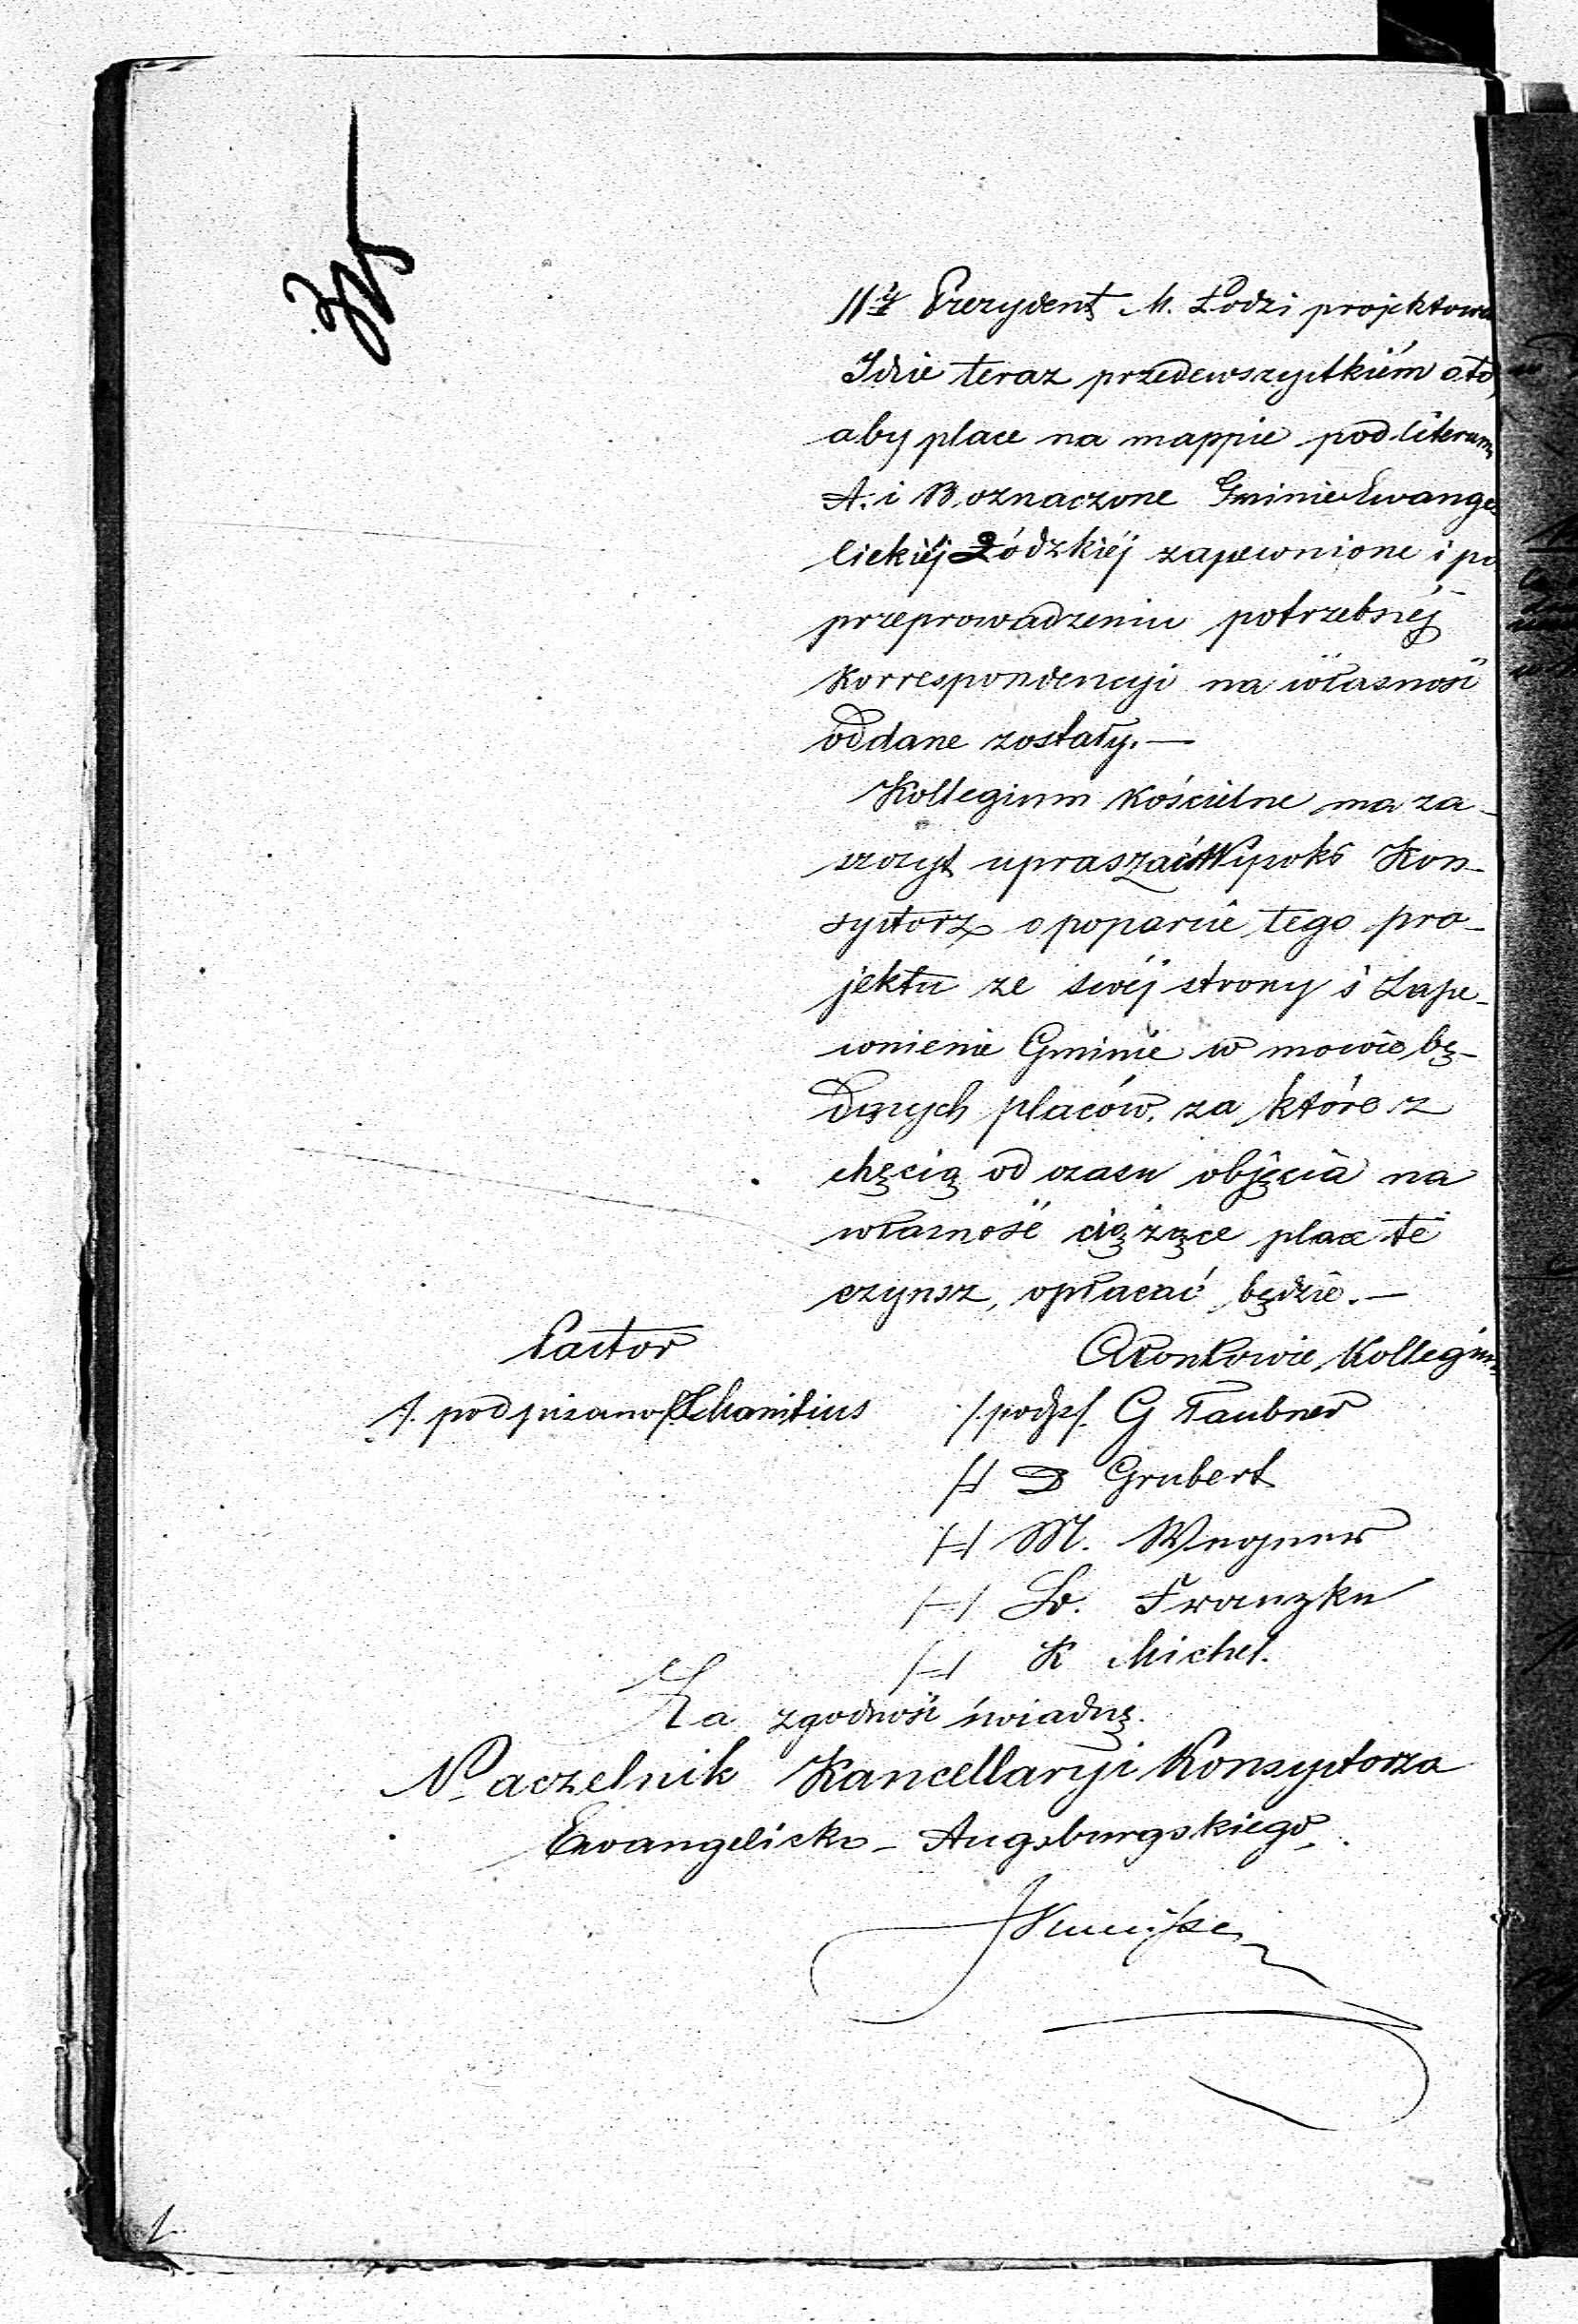 Prezydent M. Łodzi projektowa
Idzie teraz przedewszystkiém o to,
aby place na mappie pod literam
A. i B. oznaczone Gminie Ewange-
lickiéj Łódzkiéj zapewnione i po
przeprowadzeniu potrzebnéj
Korrespondencyi na własność
oddane zostały. —
Kollegium Kościelne ma za-
szczyt upraszać Kon-
systorz o poparcie tego pro-
jektu ze swéj strony i Zape-
wnienie Gminie w mowie bę-
dących placów, za które z
chęcią od czasu objęcia na
własność ciążące place te
czynsz, opłacać będzie. —
Pastor
Członkowie Kollegium
/. podpisano / Schanitius
/. podp /. G Taubner
/=/ D Grubert
/=/ M. Wegner
/=/ Franzke
/=/ K Michel.
Za zgodność świadczę.
Naczelnik Kancellaryi Konsystorza
Ewangelicko - Augsburgskiego